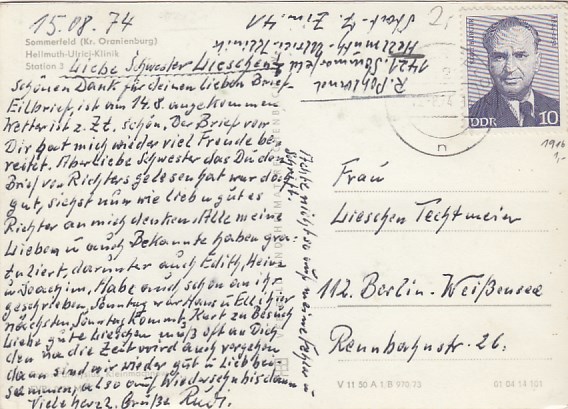 15.08.74
Sommerfeld (Kr. Oranienburg)
Hellmuth-Ulrici-Klinik
Station 3
Liebe Schwester Lieschen!
Schönen Dank für deinen lieben Brief
Eilbrief, ist am 14.8. angekommen
Wetter ist z. Zt. schön. Der Brief von
Dir hat mich wieder viel Freude be-
reitet. Aber liebe Schwester das Du den
Brief von Richters gelesen hat war doch
gut, siehst nun wie lieb u gut es
Richter an mich denken. Alle meine
Lieben u auch Bekannte haben gra-
tuliert, darunter auch Edith, Heinz
u Joachim. Habe auch schon an ihr
geschrieben, Sonntag war Hans u Elli hier
nächsten Sonntag kommt Kurt zu Besuch
Liebe gute Lieschen muß oft an Dich
denken na die Zeit wird auch vergehen
dann sind wir wieder gut u Lieb bei-
sammen, also auf Wiedersehn bis dann
Viele herzl. Grüße Rudi.
Achte möglichst so auf meine Fehler u
Schrift.
R. Pohl
1421. Sommerfeld
Hellmuth-Ulrici-Klinik
Stat. 4 Zim. 41
2,
DDR 10
1916
1,-
Frau
Lieschen Techtmeier
112. Berlin-Weißensee
Rennbahnstr. 26.
V 11 50 A 1/B 970 73
01 04 14 101